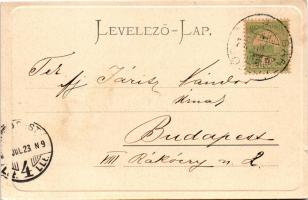 LEVELEZŐ-LAP.
Tek
ifj Járitz Nándor
Urnak
Budapest
VIII Rákóczy u. 2.
JUL. 23 N 9
4